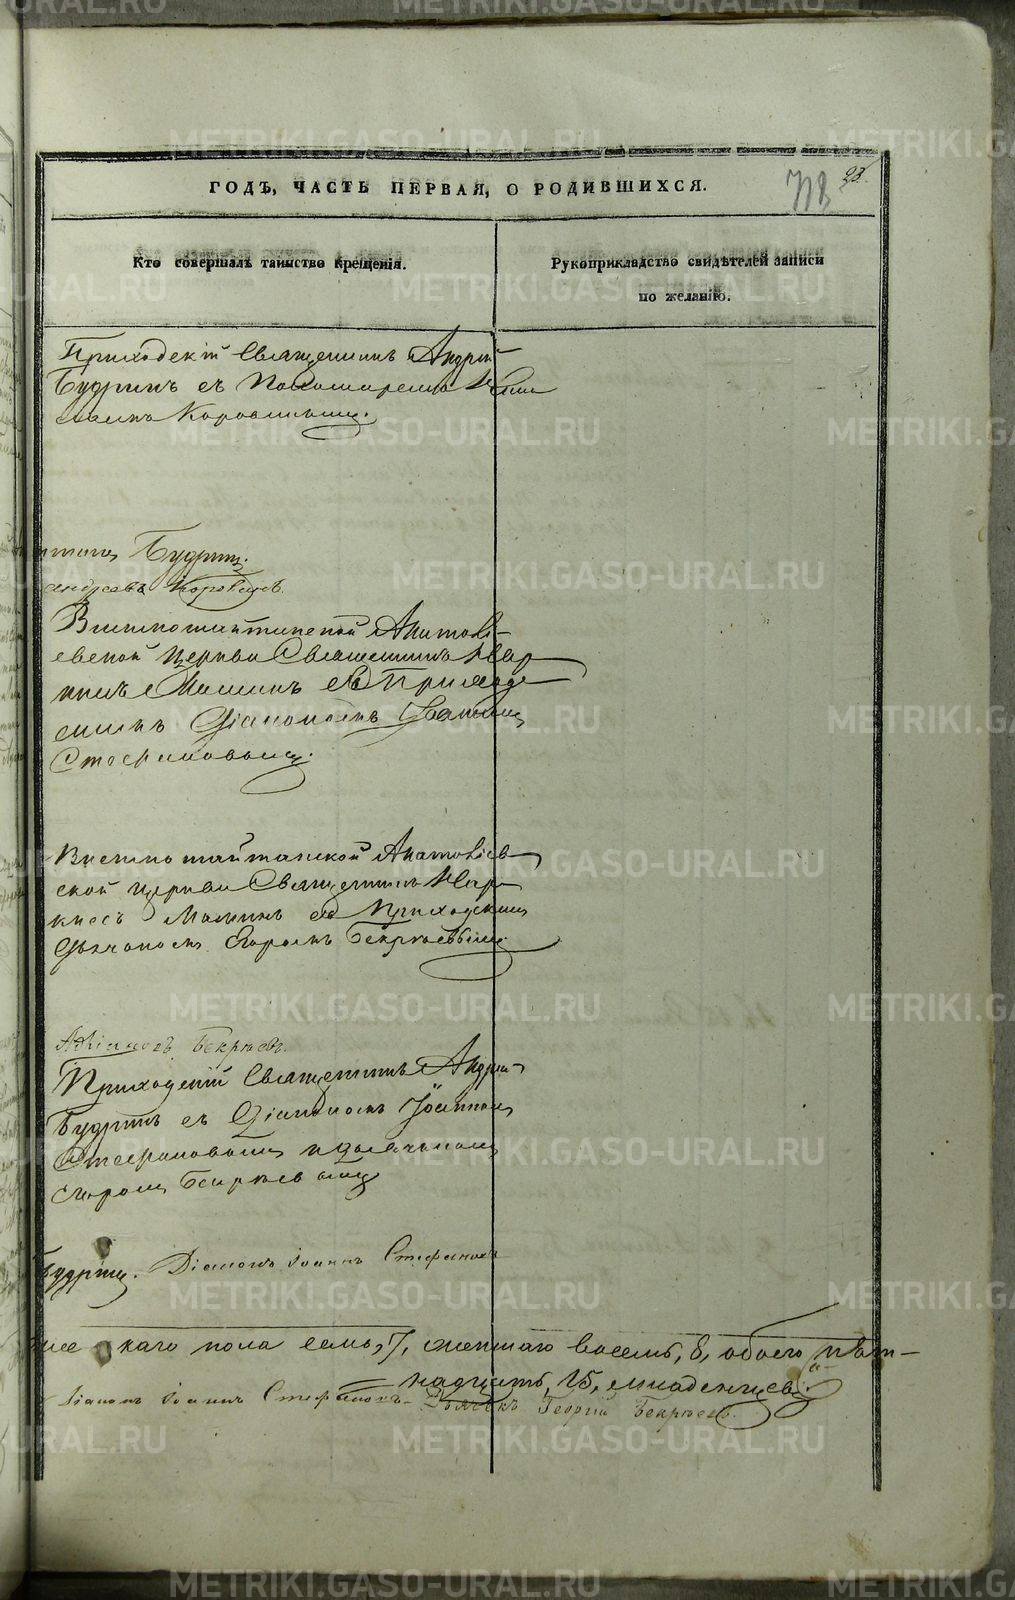 ГОДЪ, ЧАСТЬ ПЕРВАЯ, О РОДИВШИХСЯ.
23.
Кто совершалъ таинство крещенія.
Рукоприкладство свидѣтелей записи
по желанію.
Приходскій Священникъ Андрей
Будринъ съ Пономаремъ
Коровинымъ.
Будринъ.
Коровинъ.
Анатолі-
евской церкви Священникъ Мар
Малинъ съ Приходс
скимъ Діакономъ Іоанномъ
Стефановымъ.
Висимошайтанской Анатоліев
ской церкви Священникъ Мар
Малинъ съ Приходскимъ
Дьячкомъ Егоромъ Бекрѣевымъ.
Бекрѣевъ.
Приходскій Священникъ Андрей
Будринъ съ Діакономъ Іоанном
Стефановымъ и Дьячкомъ
Егоромъ Бекрѣевымъ
Будринъ. Діаконъ Іоаннъ Стефановъ
скаго пола семь, 7, женскаго восемь, 8, обоего пят-
надцать, 15, младенцевъ.
Діаконъ Іоаннъ Стефановъ. Дьячекъ Георгій Бекрѣевъ.
METRIKI.GASO-URAL.RU